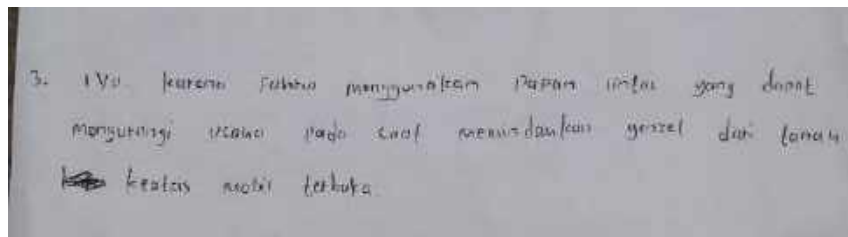 3. Iya karena Fahmi menggunakan Papan untai yang dapat
mengurangi usaha pada saat memindahkan gensel dari tanah
keatas mobil terbuka.